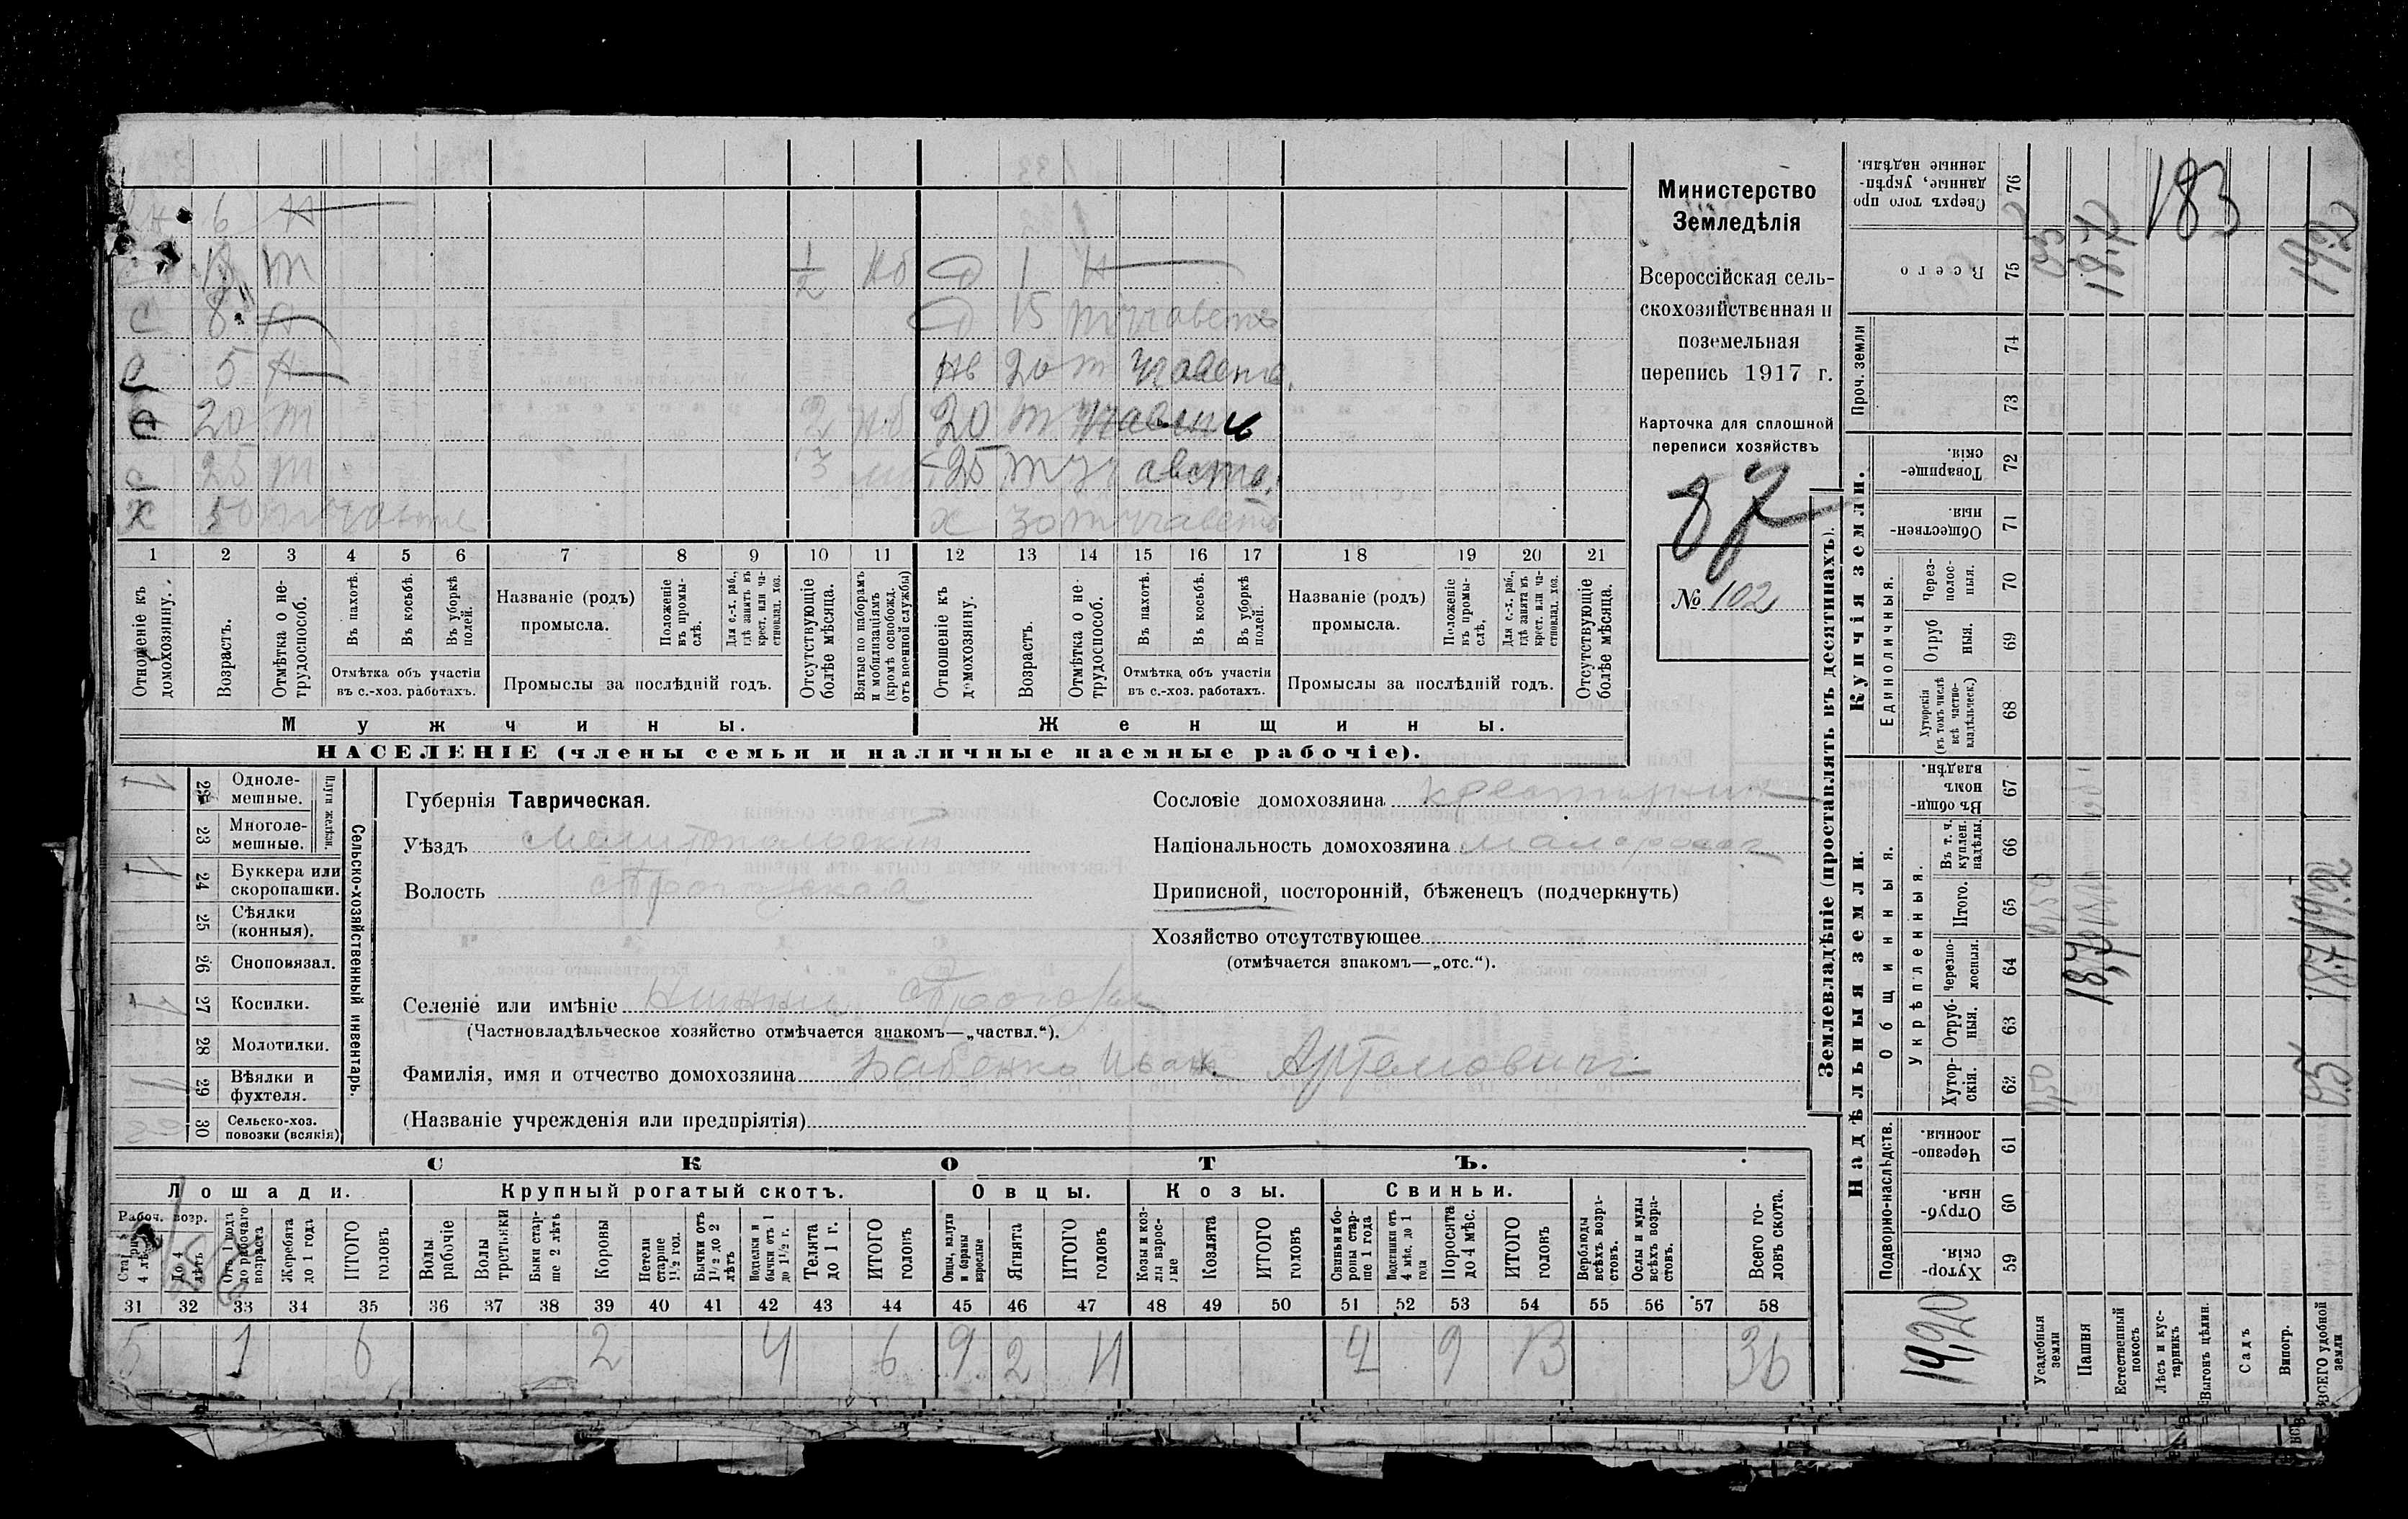 6 Н
13 т ½ Нб Д 1 Н
С 8 Н Д 15 т участв
С 5 Н 20 т участв.
20 т 2 Нб 20 т
С 25 т 3 25 т участв.
Х 50 т участв Х 30 т участв
1 2 3 4 5 6 7 8 9 10 11 12 13 14 15 16 17 18 19 20 21
Отношеніе къ домохозяину.
Возрастъ.
Отмѣтка о не-трудоспособ.
Въ пахотѣ.
Въ косьбѣ.
Въ уборкѣ полей.
Отмѣтка объ участіи въ с.-хоз. работахъ.
Названіе (родъ) промысла.
Положеніе въ промы-слѣ.
Для с.-х. раб., гдѣ занятъ въ крест. или ча-стновлад. хоз.
Промыслы за послѣдній годъ.
Отсутствующіе болѣе мѣсяца.
Взятые по наборамъ и мобилизаціямъ (кромѣ освобожд. отъ военной службы)
Отношеніе къ домохозяину.
Возрастъ.
Отмѣтка о не-трудоспособ.
Въ пахотѣ.
Въ косьбѣ.
Въ уборкѣ полей.
Отмѣтка объ участіи въ с.-хоз. работахъ.
Названіе (родъ) промысла.
Положеніе въ промы-слѣ.
Для с.-х. раб., гдѣ занята въ крест. или ча-стновлад. хоз.
Промыслы за послѣдній годъ.
Отсутствующіе болѣе мѣсяца.
Мужчины. Женщины.
НАСЕЛЕНІЕ (члены семьи и наличные наемные рабочіе).
Министерство
Земледѣлія
Всероссійская сель-
скохозяйственная и
поземельная
перепись 1917 г.
Карточка для сплошной
переписи хозяйствъ
87
№ 102
Сельско-хозяйственный инвентарь.
Плуги желѣзн.
1 22 Одноле-мешные.
23 Многоле-мешные.
1 24 Буккера или скоропашки.
25 Сѣялки (конныя).
26 Сноповязал.
1 27 Косилки.
28 Молотилки.
1 29 Вѣялки и фухтеля.
30 Сельско-хоз. повозки (всякія)
Губернія Таврическая.
Уѣздъ Мелитопольскій
Волость Строгоновская
Селеніе или имѣніе
(Частновладѣльческое хозяйство отмѣчается знакомъ—„частвл.“).
Фамилія, имя и отчество домохозяина Бабенко Иван Артемович
(Названіе учрежденія или предпріятія)
Сословіе домохозяина крестьянин
Національность домохозяина малоросс
Приписной, посторонній, бѣженецъ (подчеркнуть)
Хозяйство отсутствующее
(отмѣчается знакомъ—„отс.“).
СКОТЪ.
Лошади. Крупный рогатый скотъ. Овцы. Козы. Свиньи.
Рабоч. возр.
До 4 лѣтъ
Отъ 1 года до рабочаго возраста
Жеребята до 1 года
ИТОГО головъ
Волы рабочіе
Волы третьяки
Быки стар-ше 2 лѣтъ
Коровы
Нетели старше 1½ год.
Бычки отъ 1½ до 2 лѣтъ
Подтелки и бычки отъ 1 до 1½ г.
Телята до 1 г.
ИТОГО головъ
Овцы, валухи и бараны взрослые
Ягнята
ИТОГО головъ
Козы и коз-лы взрос-лые
Козлята
ИТОГО головъ
Свиньи и бо-ровы стар-ше 1 года
Подсвинки отъ 4 мѣс. до 1 года
Поросята до 4 мѣс.
ИТОГО головъ
Верблюды всѣхъ возра-стовъ.
Ослы и мулы всѣхъ возра-стовъ.
Всего го-ловъ скота.
31 32 33 34 35 36 37 38 39 40 41 42 43 44 45 46 47 48 49 50 51 52 53 54 55 56 57 58
5 1 6 2 4 6 9 2 11 4 9 13 36
Землевладѣніе (проставлять въ десятинахъ).
Надѣльныя земли. Купчія земли. Проч. земли
Подворно-наслѣдств.
Общинныя.
Укрѣпленныя.
Единоличныя.
59 Хутор-скія.
60 Отруб-ныя.
61 Черезпо-лосныя.
62 Хутор-скія.
63 Отруб-ныя.
64 Черезпо-лосныя.
65 Итого.
66 Въ т. ч. куплен. надѣлы.
67 Въ общи-номъ владѣн.
68 Хуторскія (въ томъ числѣ всѣ частно-владѣльческ.)
69 Отруб ныя.
70 Через-полос-ныя.
71 Обществен-ныя.
72 Товарище-скія.
73
74
75 Всего
76 Сверхъ того про данные, укрѣп-ленные надѣлы.
Усадебныя земли
Пашня 18,7 18,7
Естественный покосъ
Лѣсъ и кус-тарникъ
Выгонъ цѣлин.
Садъ
Виногр.
ВСЕГО удобной земли 0,5 18.7 19.2 19.2
19,20
183